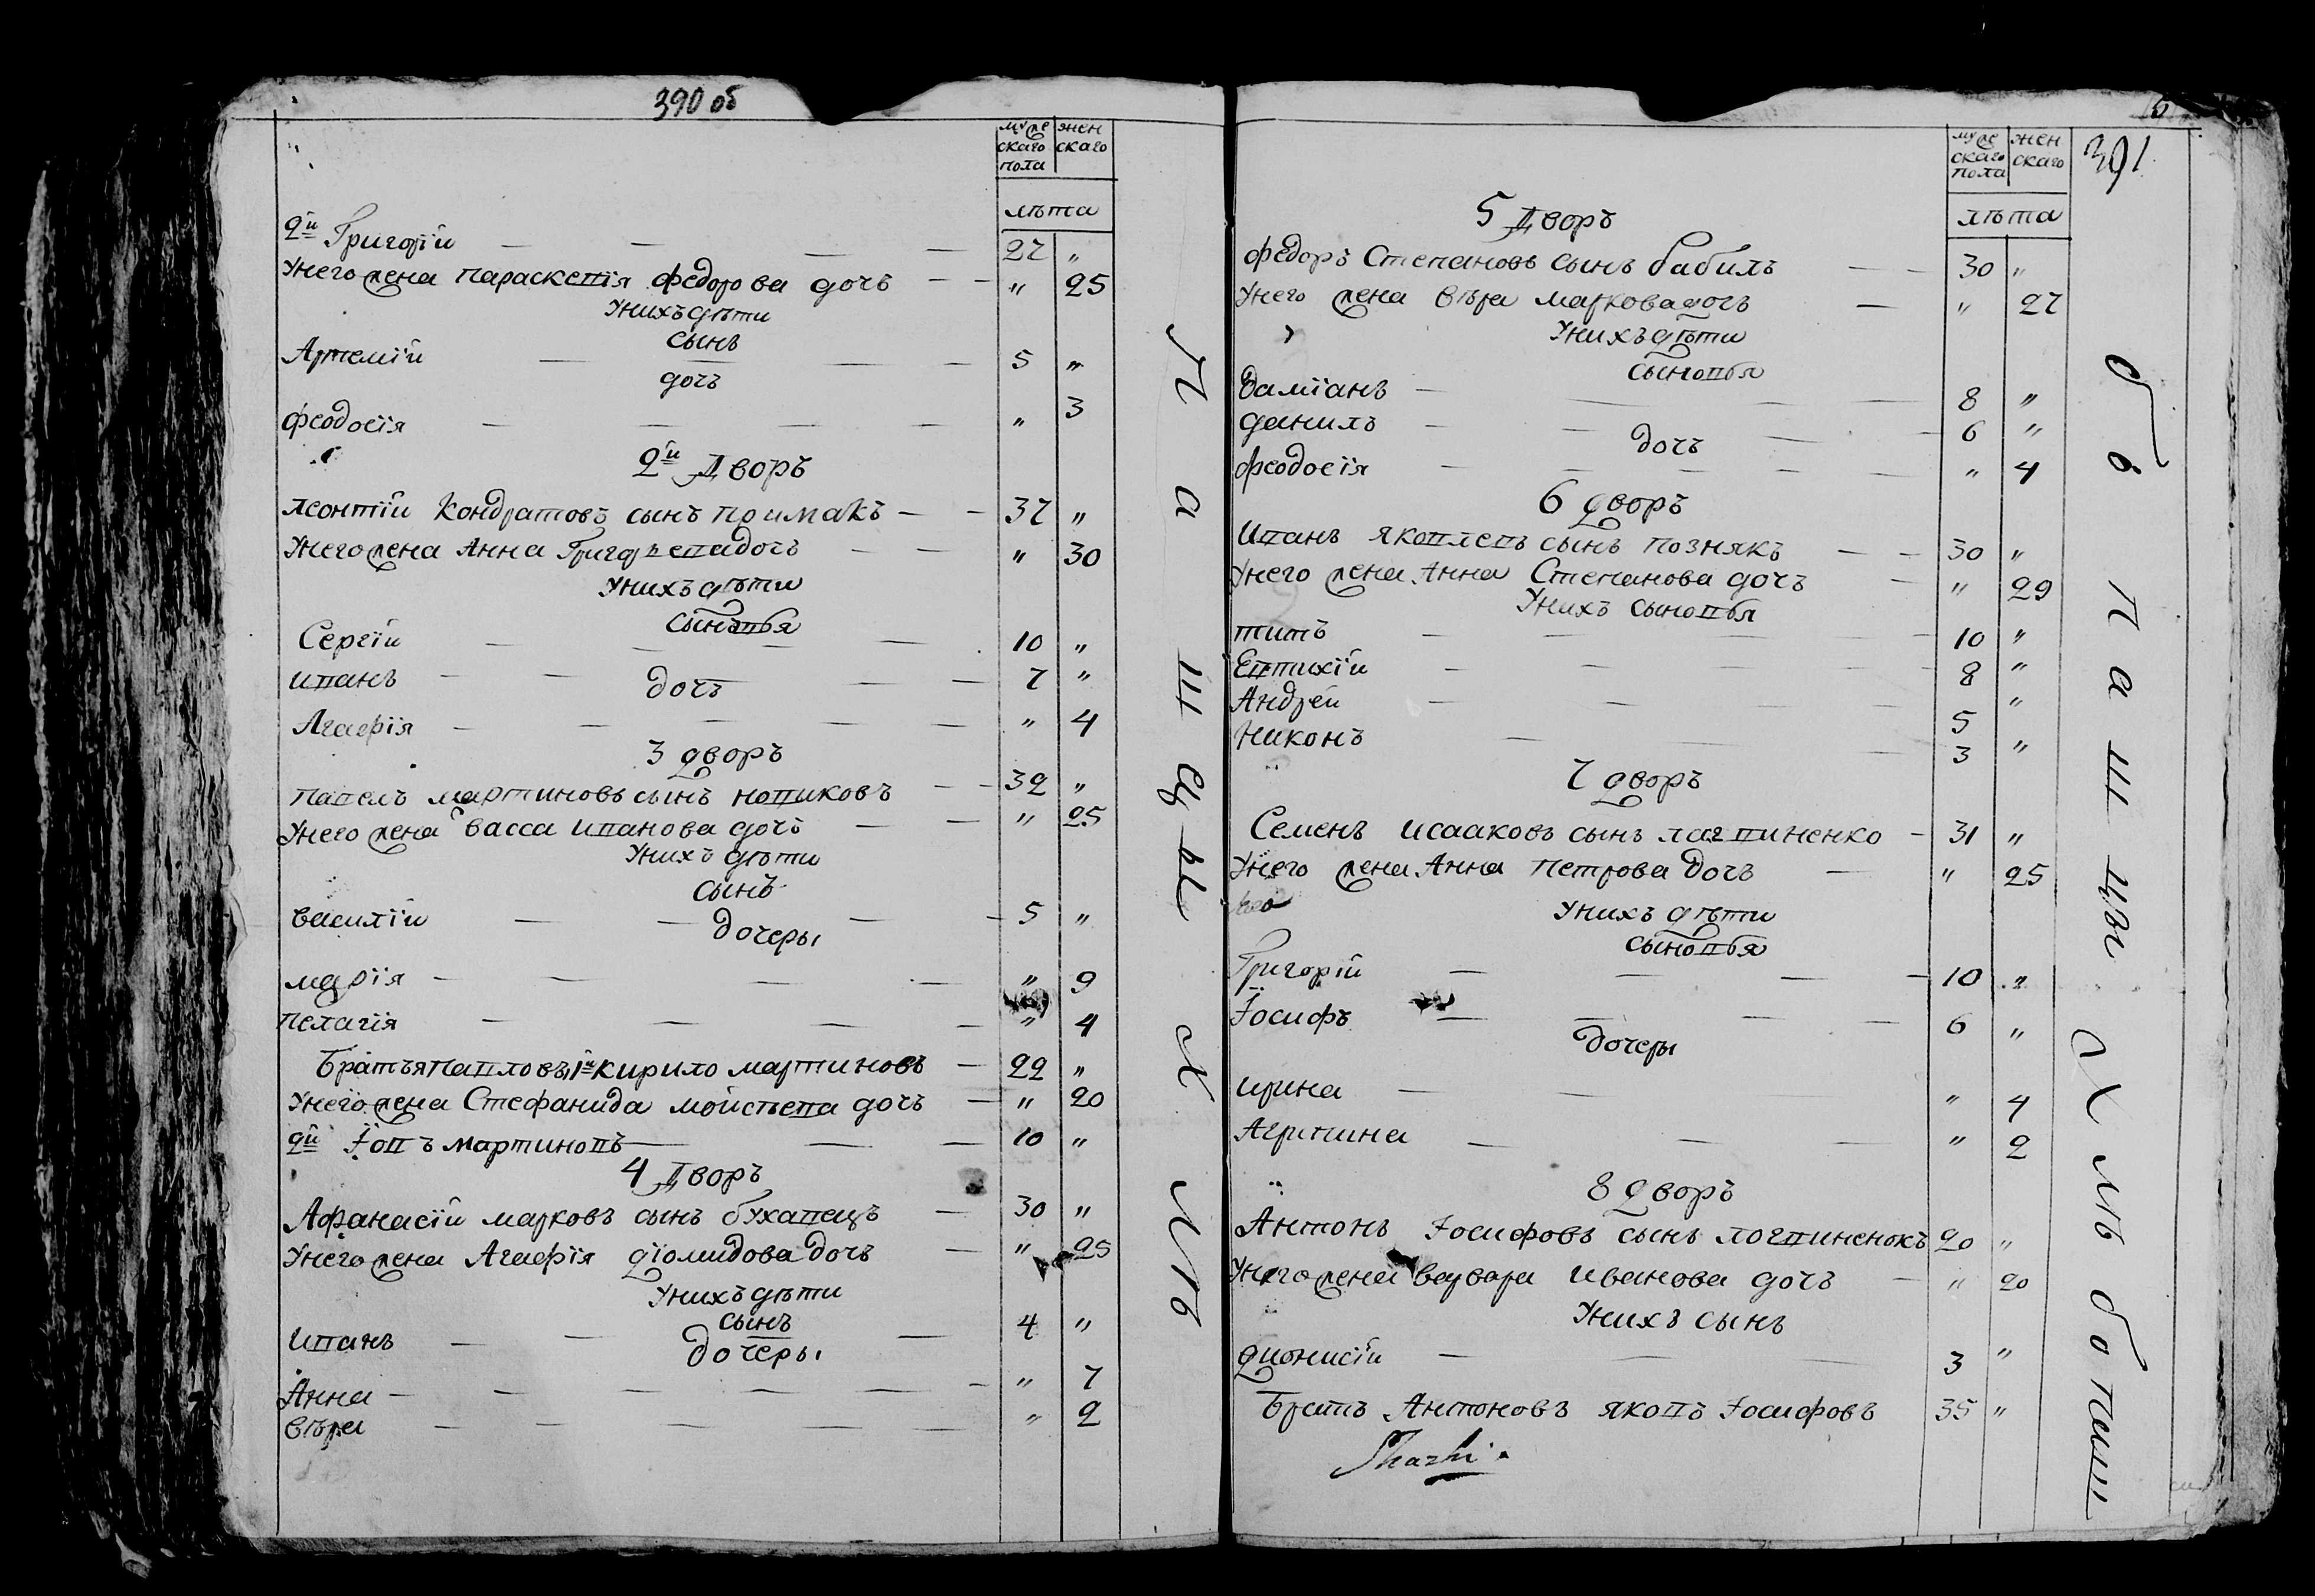 390 об
мужескаго пола
женскаго
лѣта
2й Григорій — — — 27 „
Унего жена Параскевія федорова дочъ — — „ 25
Унихъ дѣти
сынъ
Артемій — — — — 5 „
дочъ
феодосія — — — — „ 3
2й Дворъ
Леонтій Кондратовъ сынъ примакъ — — 37 „
Унего жена Анна Григорьева дочъ — — „ 30
Унихъ дѣти
сыновья
Сергій — — — — 10 „
иванъ — — — — 7 „
дочъ
Агафія — — — — „ 4
3 дворъ
павелъ мартиновъ сынъ новиковъ — — 32 „
Унего жена васса иванова дочъ — — „ 25
Унихъ дѣти
сынъ
василій — — — — 5 „
дочеры
марія — — — — „ 9
пелагія — — — — „ 4
Братья павловы 1й кирило мартиновъ — 22 „
Унего жена Стефанида мойсѣева дочъ — „ 20
2й Іовъ мартиновъ — — — 10 „
4 Дворъ
Афанасій марковъ сынъ бухавецъ — 30 „
Унего жена Агафія діомидова дочъ — „ 25
Унихъ дѣти
сынъ
Иванъ — — — 4 „
дочеры
Анна — — — — — — „ 7
вѣра — — — — — „ 2
П а ш цы Х Мъ
391
мужескаго пола
женскаго
лѣта
5 Дворъ
федоръ Степановъ сынъ бабилъ — — 30 „
Унего жена вѣра маркова дочъ — „ 27
Унихъ дѣти
сыновья
даміанъ — — — 8 „
данилъ — — — — 6 „
дочъ
феодосія — — — — „ 4
6 дворъ
Иванъ яковлевъ сынъ познякъ — — 30 „
Унего жена Анна Степанова дочъ — „ 29
Унихъ сыновья
титъ — — — — 10 „
Евтихій — — — — 8 „
Андрей — — — — 5 „
Никонъ — — — 3 „
7 дворъ
Семенъ исааковъ сынъ логвиненко — 31 „
Унего жена Анна петрова дочъ — „ 25
Унихъ дѣти
сыновья
Григорій — — — — 10 „
Іосифъ — — — — 6 „
дочеры
ирина — — — „ 4
Агрипина — — — „ 2
8 дворъ
Антонъ Іосифовъ сынъ логвиненокъ 20 „
Унего жена варвара иванова дочъ — „ 20
Унихъ сынъ
дионисій — — — 3 „
Братъ Антоновъ яковъ Іосифовъ 35 „